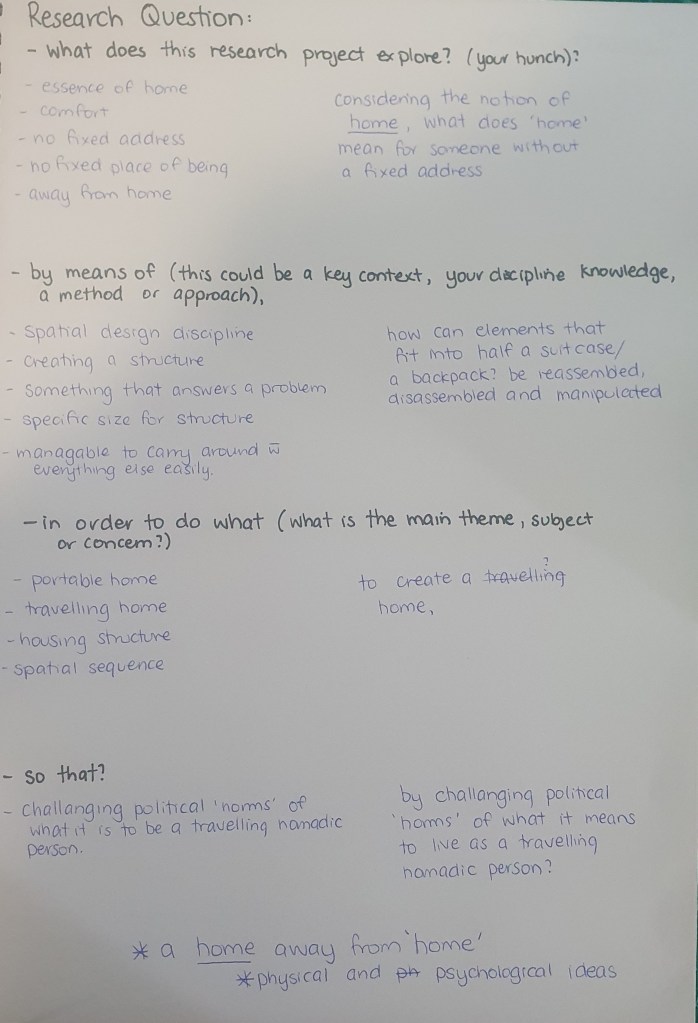 Research Question:
- what does this research project explore? (your hunch)?
- essence of home
- comfort
- no fixed address
- no fixed place of being
- away from home
considering the notion of
home, what does 'home'
mean for someone without
a fixed address
- by means of (this could be a key context, your discipline knowledge,
a method or approach),
- spatial design discipline
- creating a structure
- something that answers a problem
- specific size for structure
- managable to carry around w̄
everything else easily.
how can elements that
fit into half a suitcase/
a backpack? be reassembled,
disassembled and manipulated
- in order to do what (what is the main theme, subject
or concern?)
- portable home
- travelling home
- housing structure
- spatial sequence
?
to create a travelling
home,
- so that?
- challanging political 'norms' of
what it is to be a travelling namadic
person.
by challanging political
'norms' of what it means
to live as a travelling
namadic person?
* a home away from 'home'
* physical and ph psychological ideas